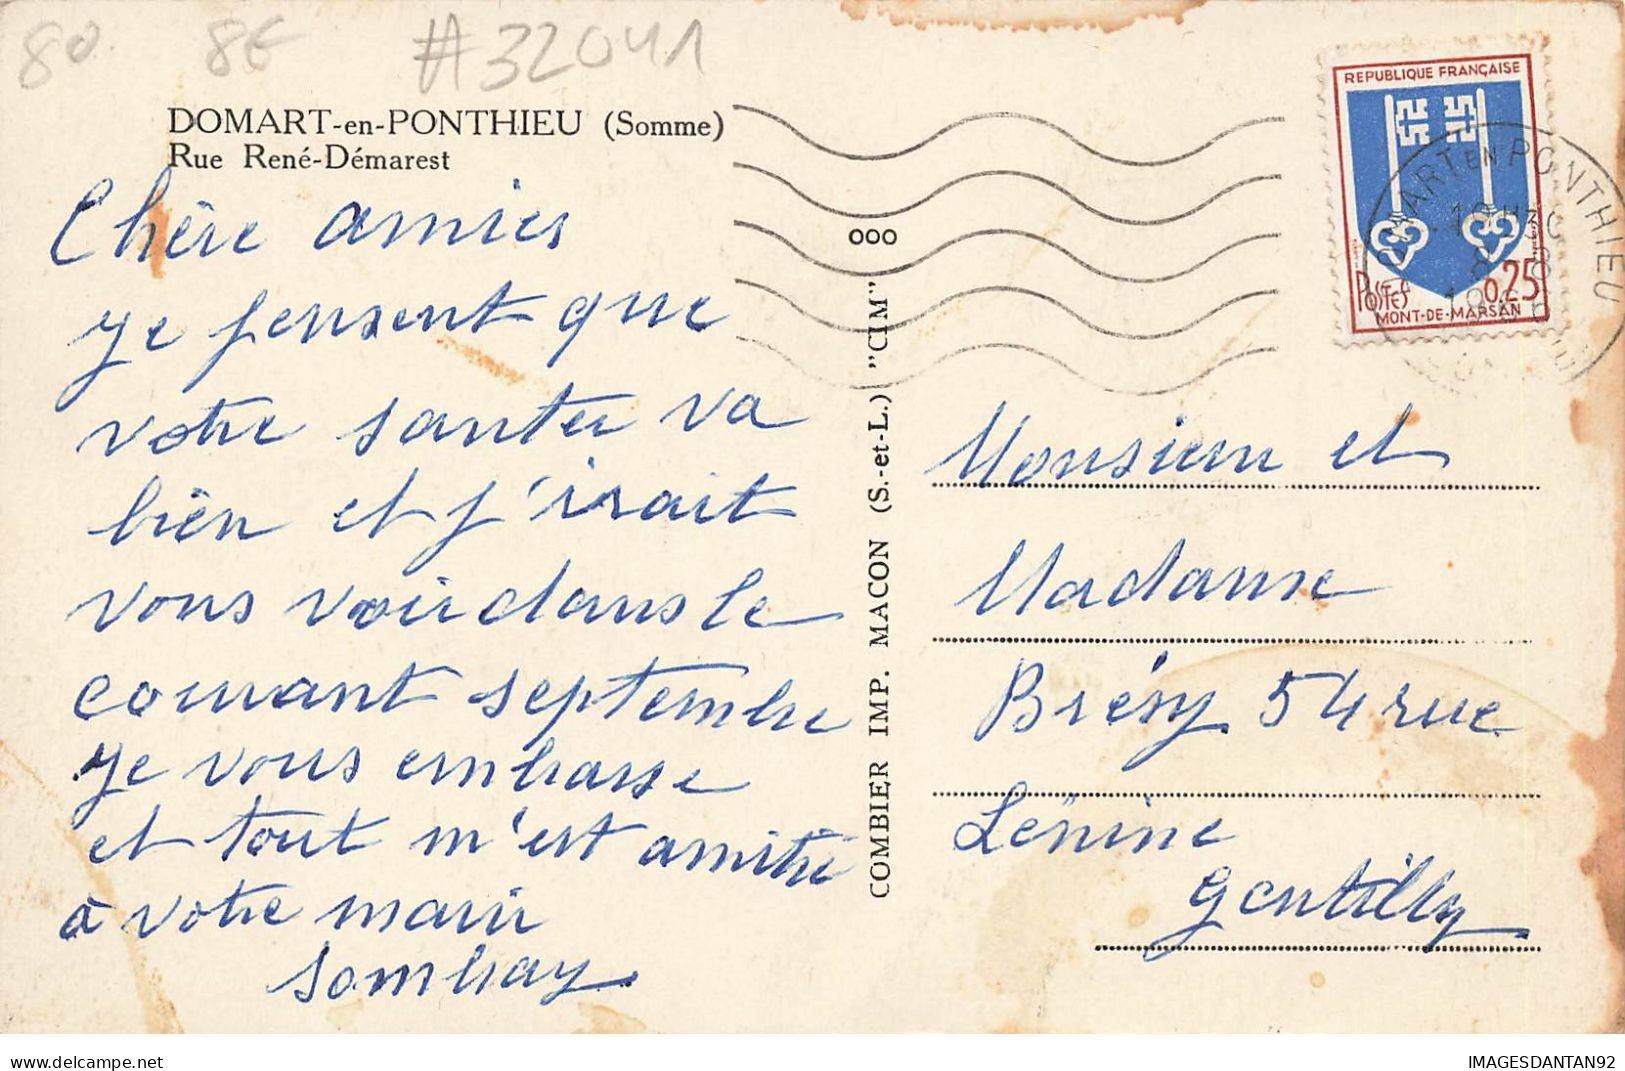 80 8€ #32041
DOMART-en-PONTHIEU (Somme)
Rue René-Démarest
Chère amies
je pensent que
votre santer va
bien et j'irait
vous voir dans le
courant septembre
Je vous embrasse
et tout m'est amitié
à votre marir
Sombay
ooo
COMBIER IMP. MACON (S.-et-L.) "CIM"
REPUBLIQUE FRANÇAISE
POSTES 0,25
MONT-DE-MARSAN
DOMART EN PONTHIEU
Monsieur et
Madame
Brésy 54 rue
Lénine
Gentilly
IMAGESDANTAN92